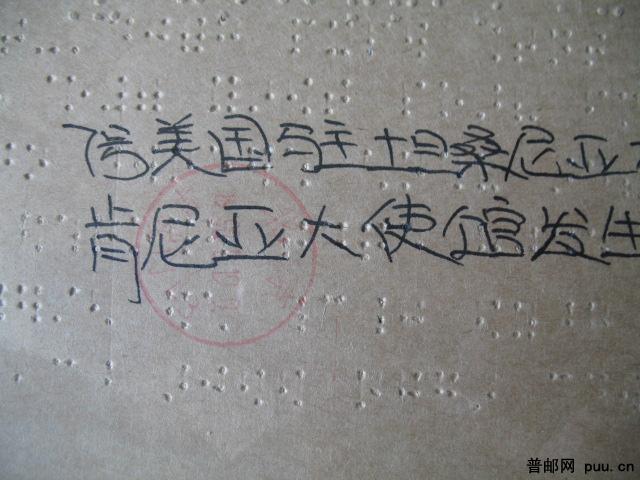 美国驻坦桑尼亚
肯尼亚大使馆发生
普邮网 puu.cn